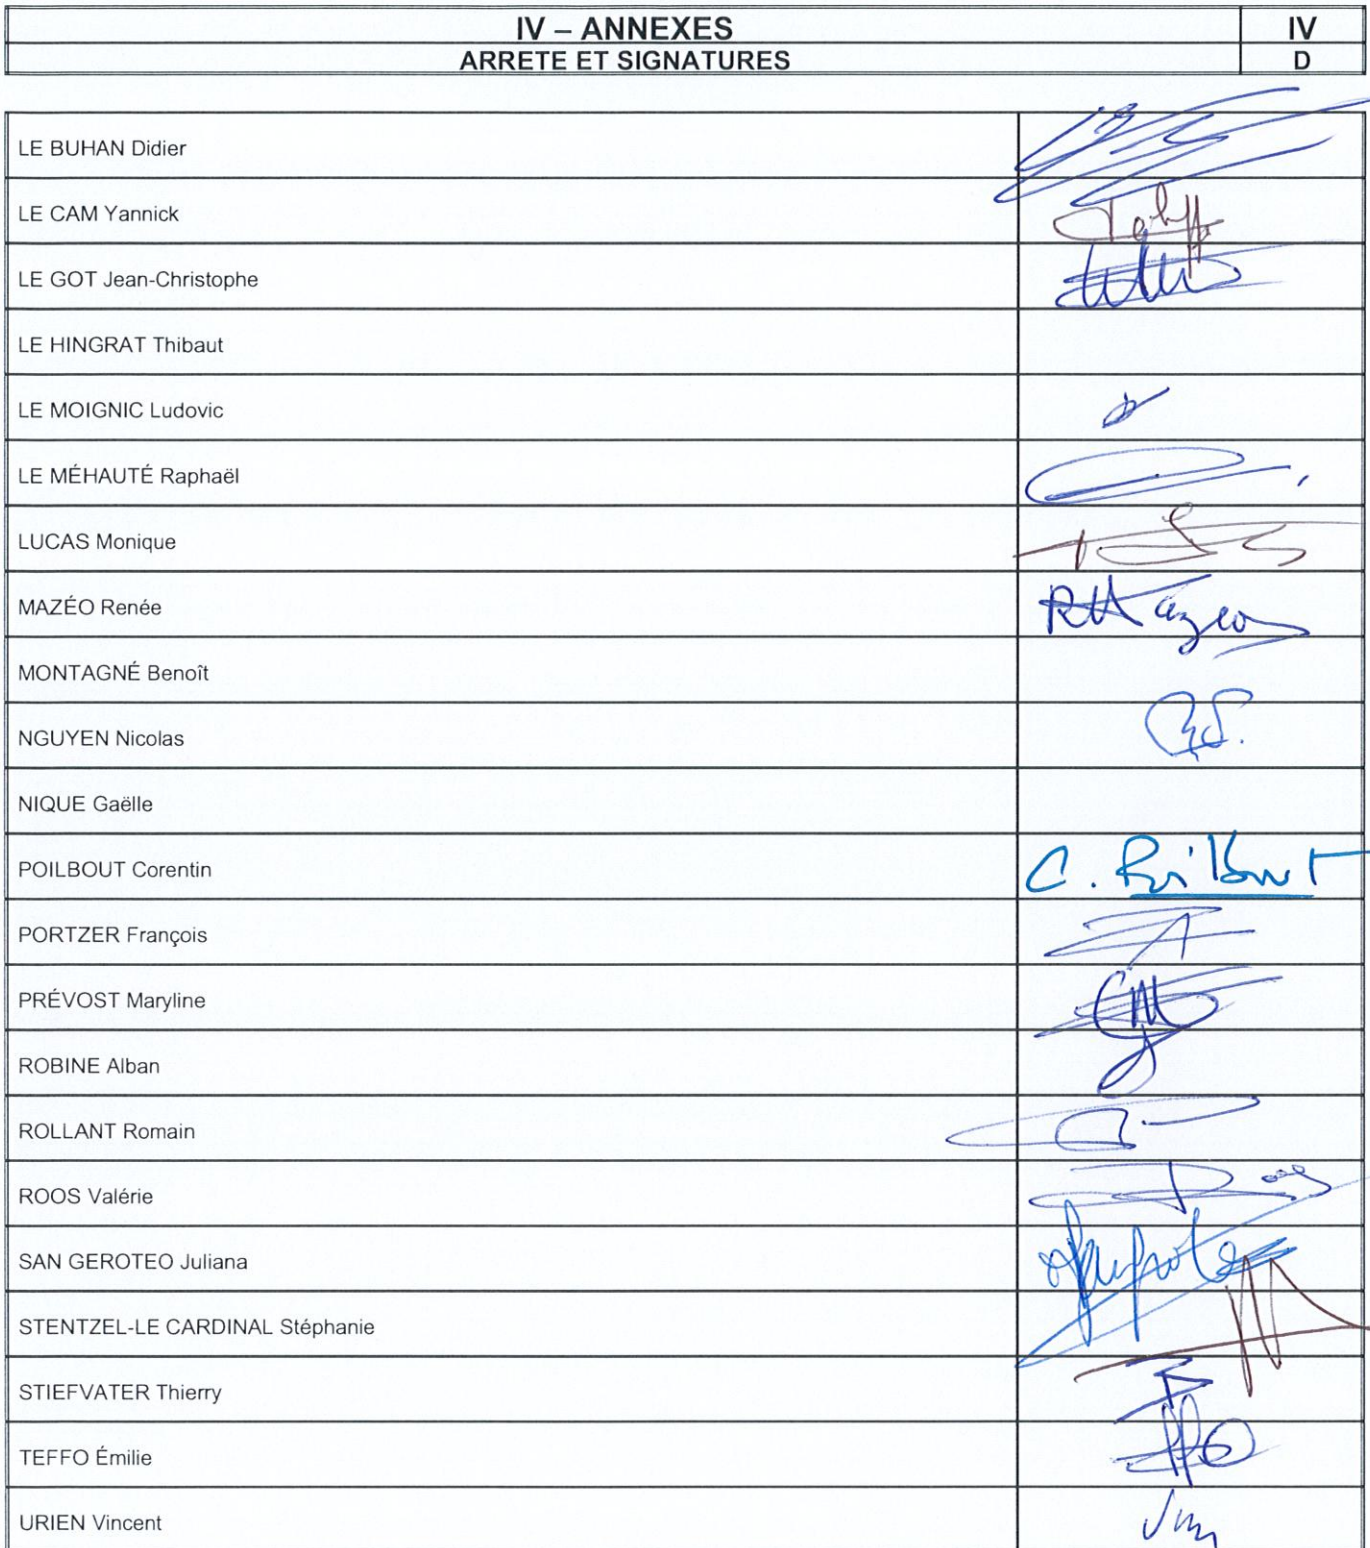 IV – ANNEXES IV
ARRETE ET SIGNATURES D
LE BUHAN Didier
LE CAM Yannick
LE GOT Jean-Christophe
LE HINGRAT Thibaut
LE MOIGNIC Ludovic
LE MÉHAUTÉ Raphaël
LUCAS Monique
MAZÉO Renée RMazeo
MONTAGNÉ Benoît
NGUYEN Nicolas
NIQUE Gaëlle
POILBOUT Corentin C. Poilbout
PORTZER François
PRÉVOST Maryline
ROBINE Alban
ROLLANT Romain
ROOS Valérie
SAN GEROTEO Juliana
STENTZEL-LE CARDINAL Stéphanie
STIEFVATER Thierry
TEFFO Émilie
URIEN Vincent